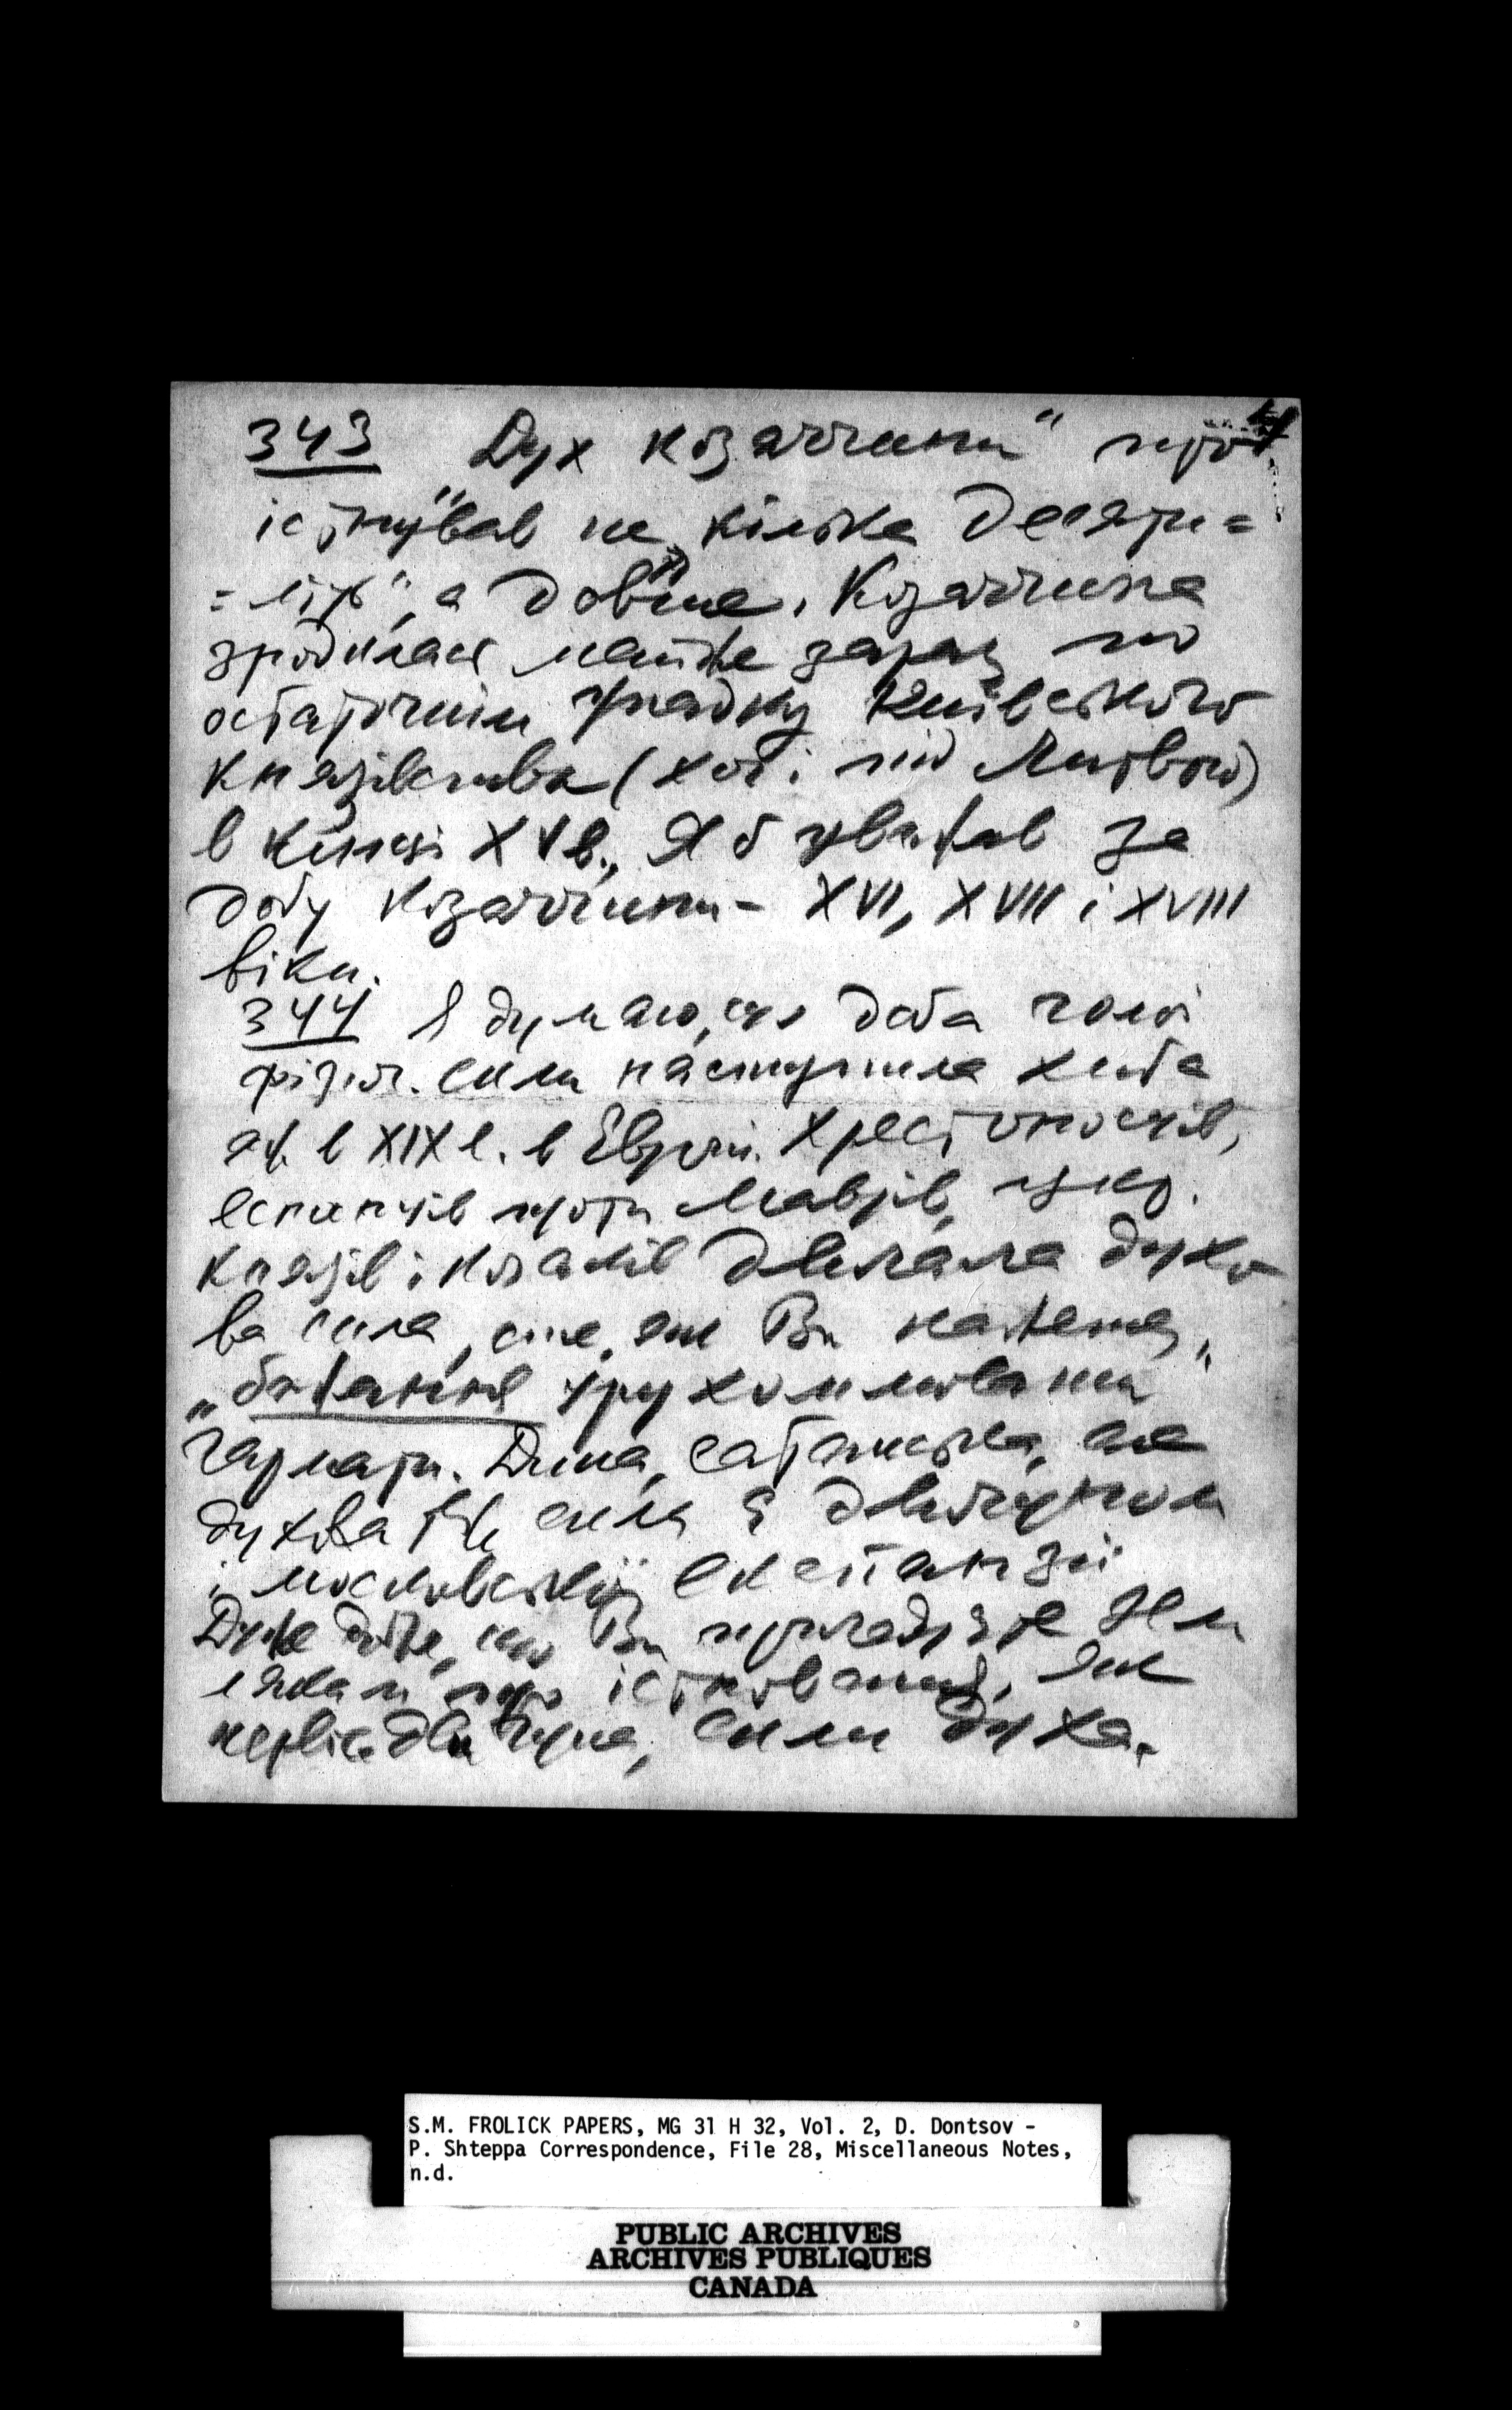 343 Дух козаччини" про
існував не „кілька десяти=
=літь", а довше. Козаччина
зродилася майже зараз по
остаточнім упадку Київського
Князівства (хоч і під Литвою)
в кінці XV в., Я б уважав за
добу козаччини - XVI, XVII і XVIII
віки.
344 Я думаю, що доба голої
фізич. сили наступила хиба
аж в XIX в. в Европі. Хрестоносців,
еспанців проти Маврів, укр.
князів і козаків двигала духо
ва сила, оте, як Ви кажете,
„бажання урухомлювати"
гармати. Дика, сатанська, але
духова теж сила є двигуном
і московської експанзії
Дуже добре, що Ви пригадуєте цим
лякам про існування, як
первіс. двигуна, сили духа.
S.M. FROLICK PAPERS, MG 31 H 32, Vol. 2, D. Dontsov -
P. Shteppa Correspondence, File 28, Miscellaneous Notes,
n.d.
PUBLIC ARCHIVES
ARCHIVES PUBLIQUES
CANADA